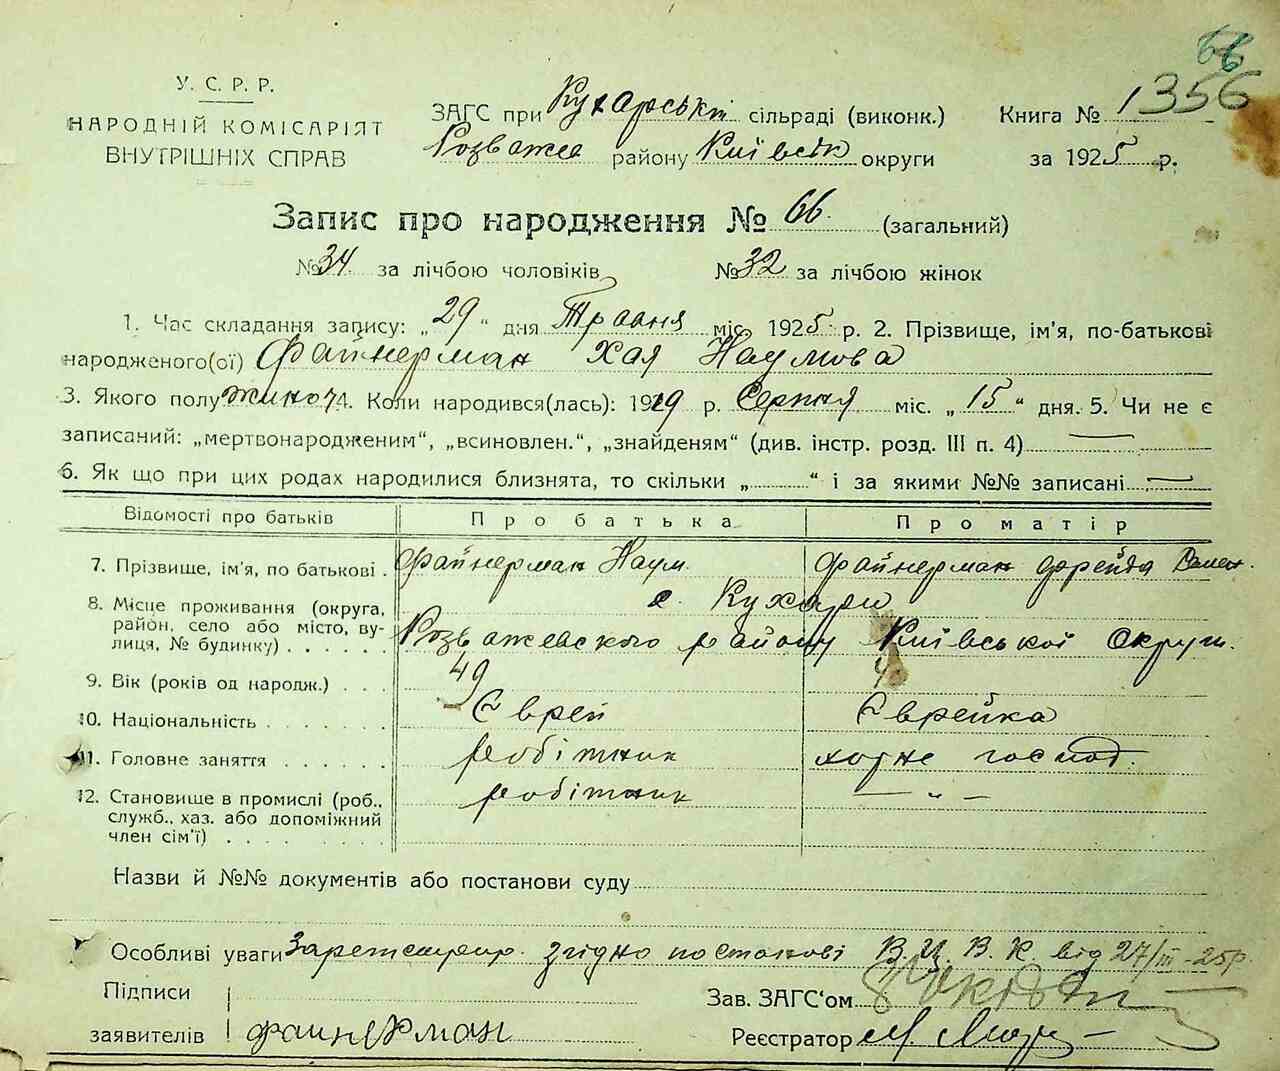 66
У. С. Р. Р.
НАРОДНІЙ КОМІСАРІЯТ
ВНУТРІШНІХ СПРАВ
ЗАГС при Кухарській сільраді (виконк.)
Розваже району Київськ округи
Книга № 1 356
за 1925 р.
Запис про народження № 66. (загальний)
№ 34 за лічбою чоловіків № 32 за лічбою жінок
1. Час складання запису: „29“ дня Травня міс. 1925 р. 2. Прізвище, ім'я, по-батькові
народженого(ої) Файнерман Хая Наумова
3. Якого полу жиноч 4. Коли народився(лась): 1919 р. Серпня міс. „15“ дня. 5. Чи не є
записаний: „мертвонародженим“, „всиновлен.“, „знайденям“ (див. інстр. розд. III п. 4) —
6. Як що при цих родах народилися близнята, то скільки „ “ і за якими №№ записані —
Відомості про батьків Про батька Про матір
7. Прізвище, ім'я, по батькові . Файнерман Наум. Файнерман Фрейда
8. Місце проживання (округа, район, село або місто, вулиця, № будинку) . . . . . .
с. Кухари
Розважевского району Київської Округи.
9. Вік (років од народж.) . . . 49
10. Національність . . . . . . . Єврей Єврейка
11. Головне заняття . . . . . . робітник господ.
12. Становище в промислі (роб., служб., хаз. або допоміжний член сім'ї) . . . . . . . . робітник — „ —
Назви й №№ документів або постанови суду
Особливі уваги згідно постанові В. Ц. В. К. від 27/III-25р.
Підписи
заявителів Файнерман
Зав. ЗАГС'ом
Реєстратор М.